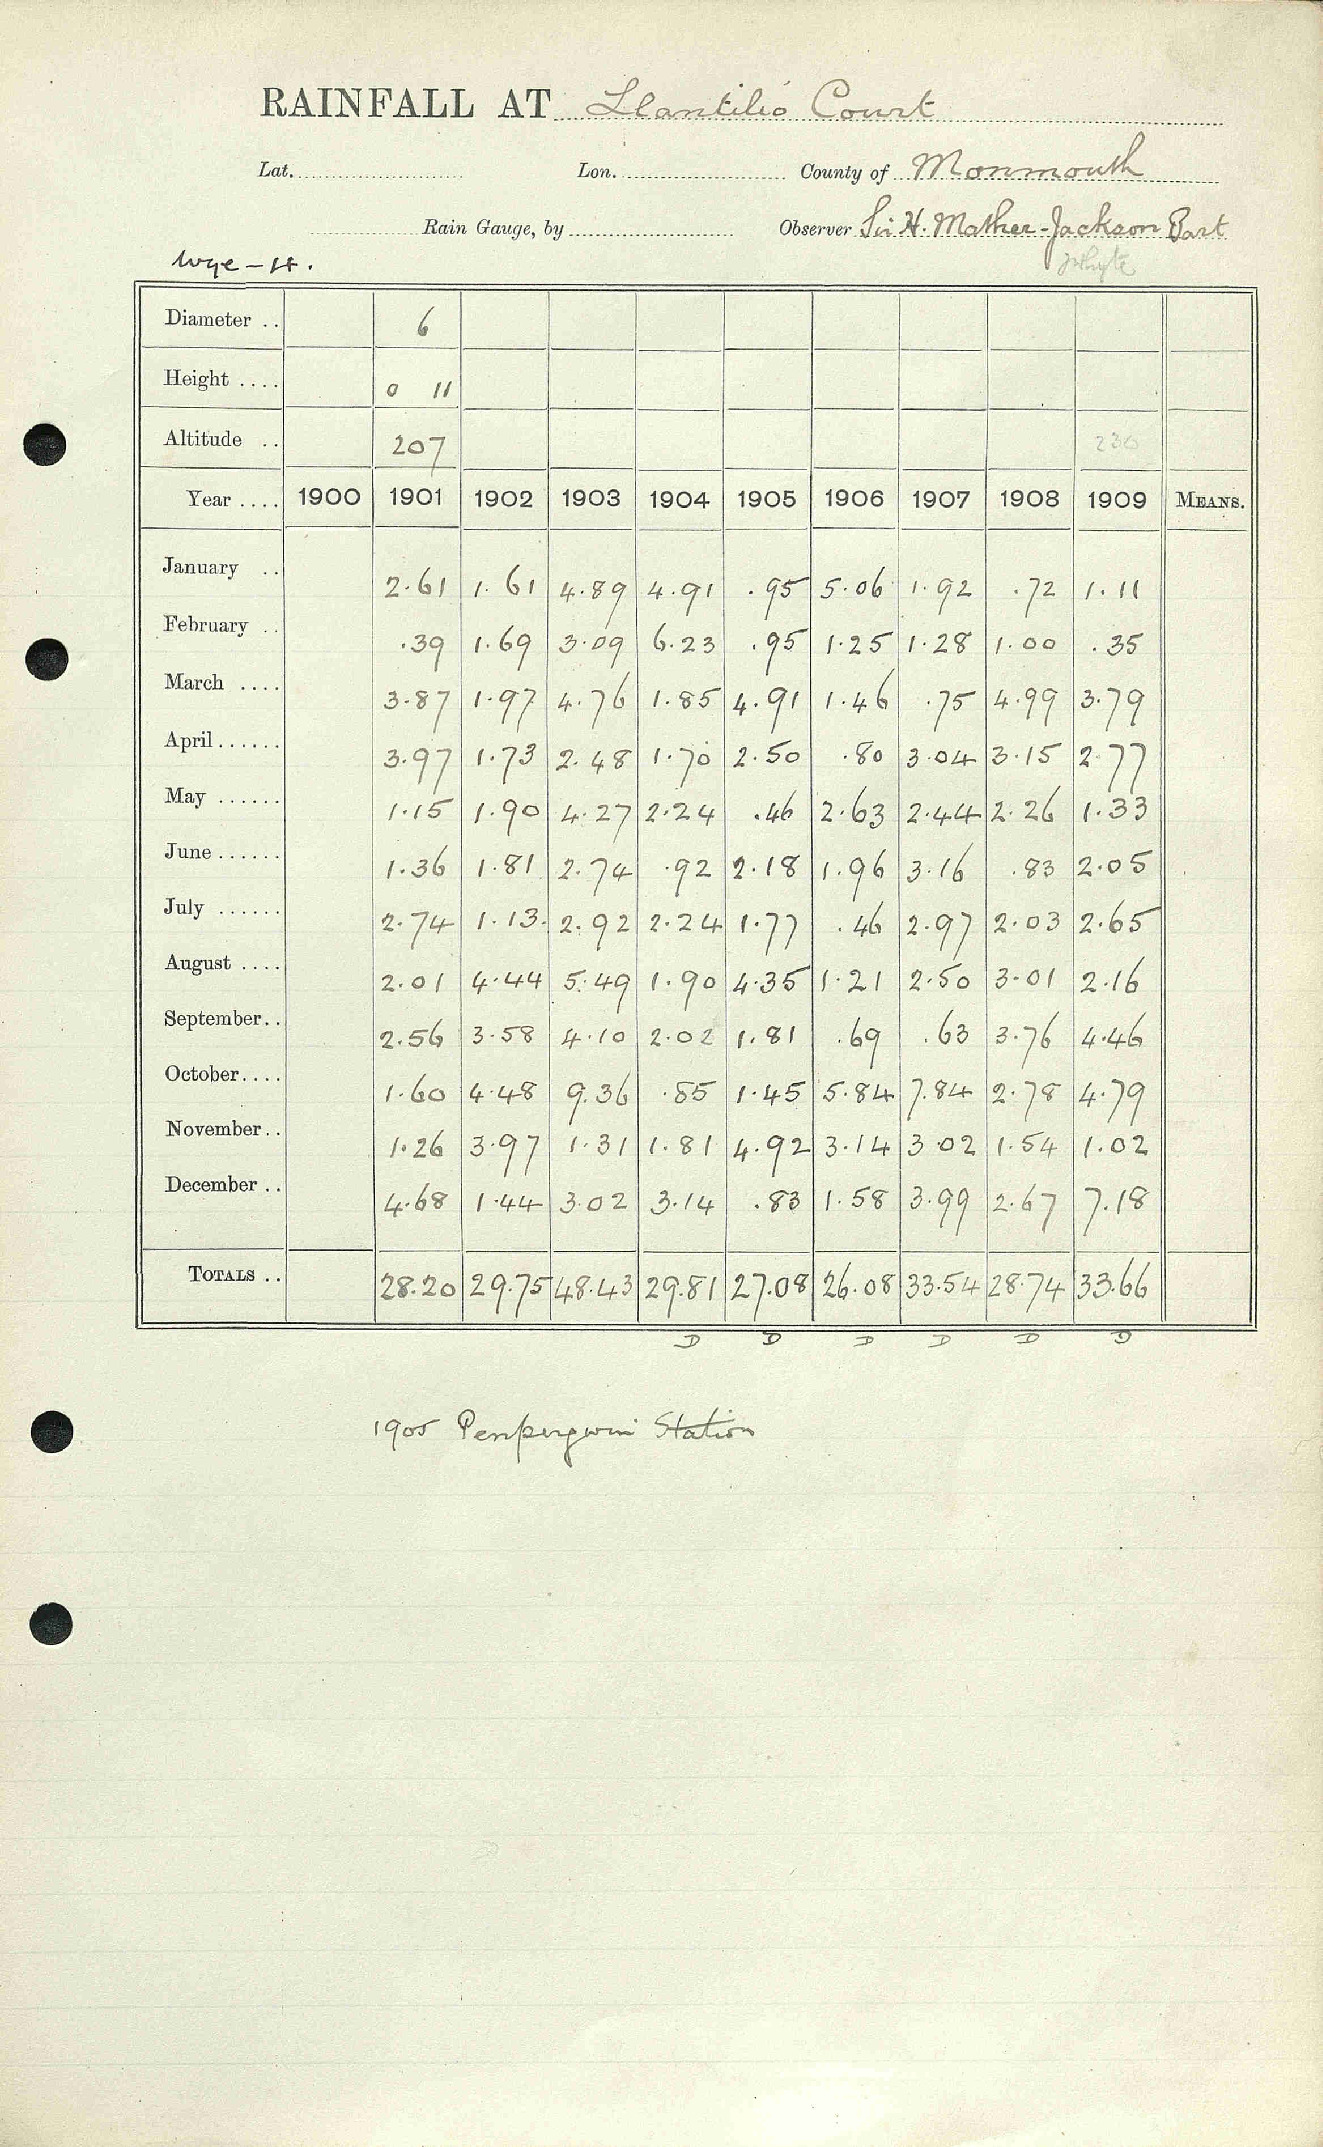 RAINFALL AT Llantilio Court
Lat. Lon. County of Monmouth
Rain Gauge, by Observer Sir H. Mather-Jackson Bart
Wye - H.
Diameter .. 6
Height .... 0 11
Altitude .. 207 230
Year .... 1900 1901 1902 1903 1904 1905 1906 1907 1908 1909 MEANS.
January .. 2.61 1.61 4.89 4.91 .95 5.06 1.92 .72 1.11
February .. .39 1.69 3.09 6.23 .95 1.25 1.28 1.00 .35
March .... 3.87 1.97 4.76 1.85 4.91 1.46 .75 4.99 3.79
April...... 3.97 1.73 2.48 1.70 2.50 .80 3.04 3.15 2.77
May ...... 1.15 1.90 4.27 2.24 .46 2.63 2.44 2.26 1.33
June...... 1.36 1.81 2.74 .92 2.18 1.96 3.16 .83 2.05
July ...... 2.74 1.13. 2.92 2.24 1.77 .46 2.97 2.03 2.65
August .... 2.01 4.44 5.49 1.90 4.35 1.21 2.50 3.01 2.16
September.. 2.56 3.58 4.10 2.02 1.81 .69 .63 3.76 4.46
October.... 1.60 4.48 9.36 .85 1.45 5.84 7.84 2.78 4.79
November.. 1.26 3.97 1.31 1.81 4.92 3.14 3.02 1.54 1.02
December .. 4.68 1.44 3.02 3.14 .83 1.58 3.99 2.67 7.18
TOTALS .. 28.20 29.75 48.43 29.81 27.08 26.08 33.54 28.74 33.66
D D D D D D
1905 Penpergwm Station